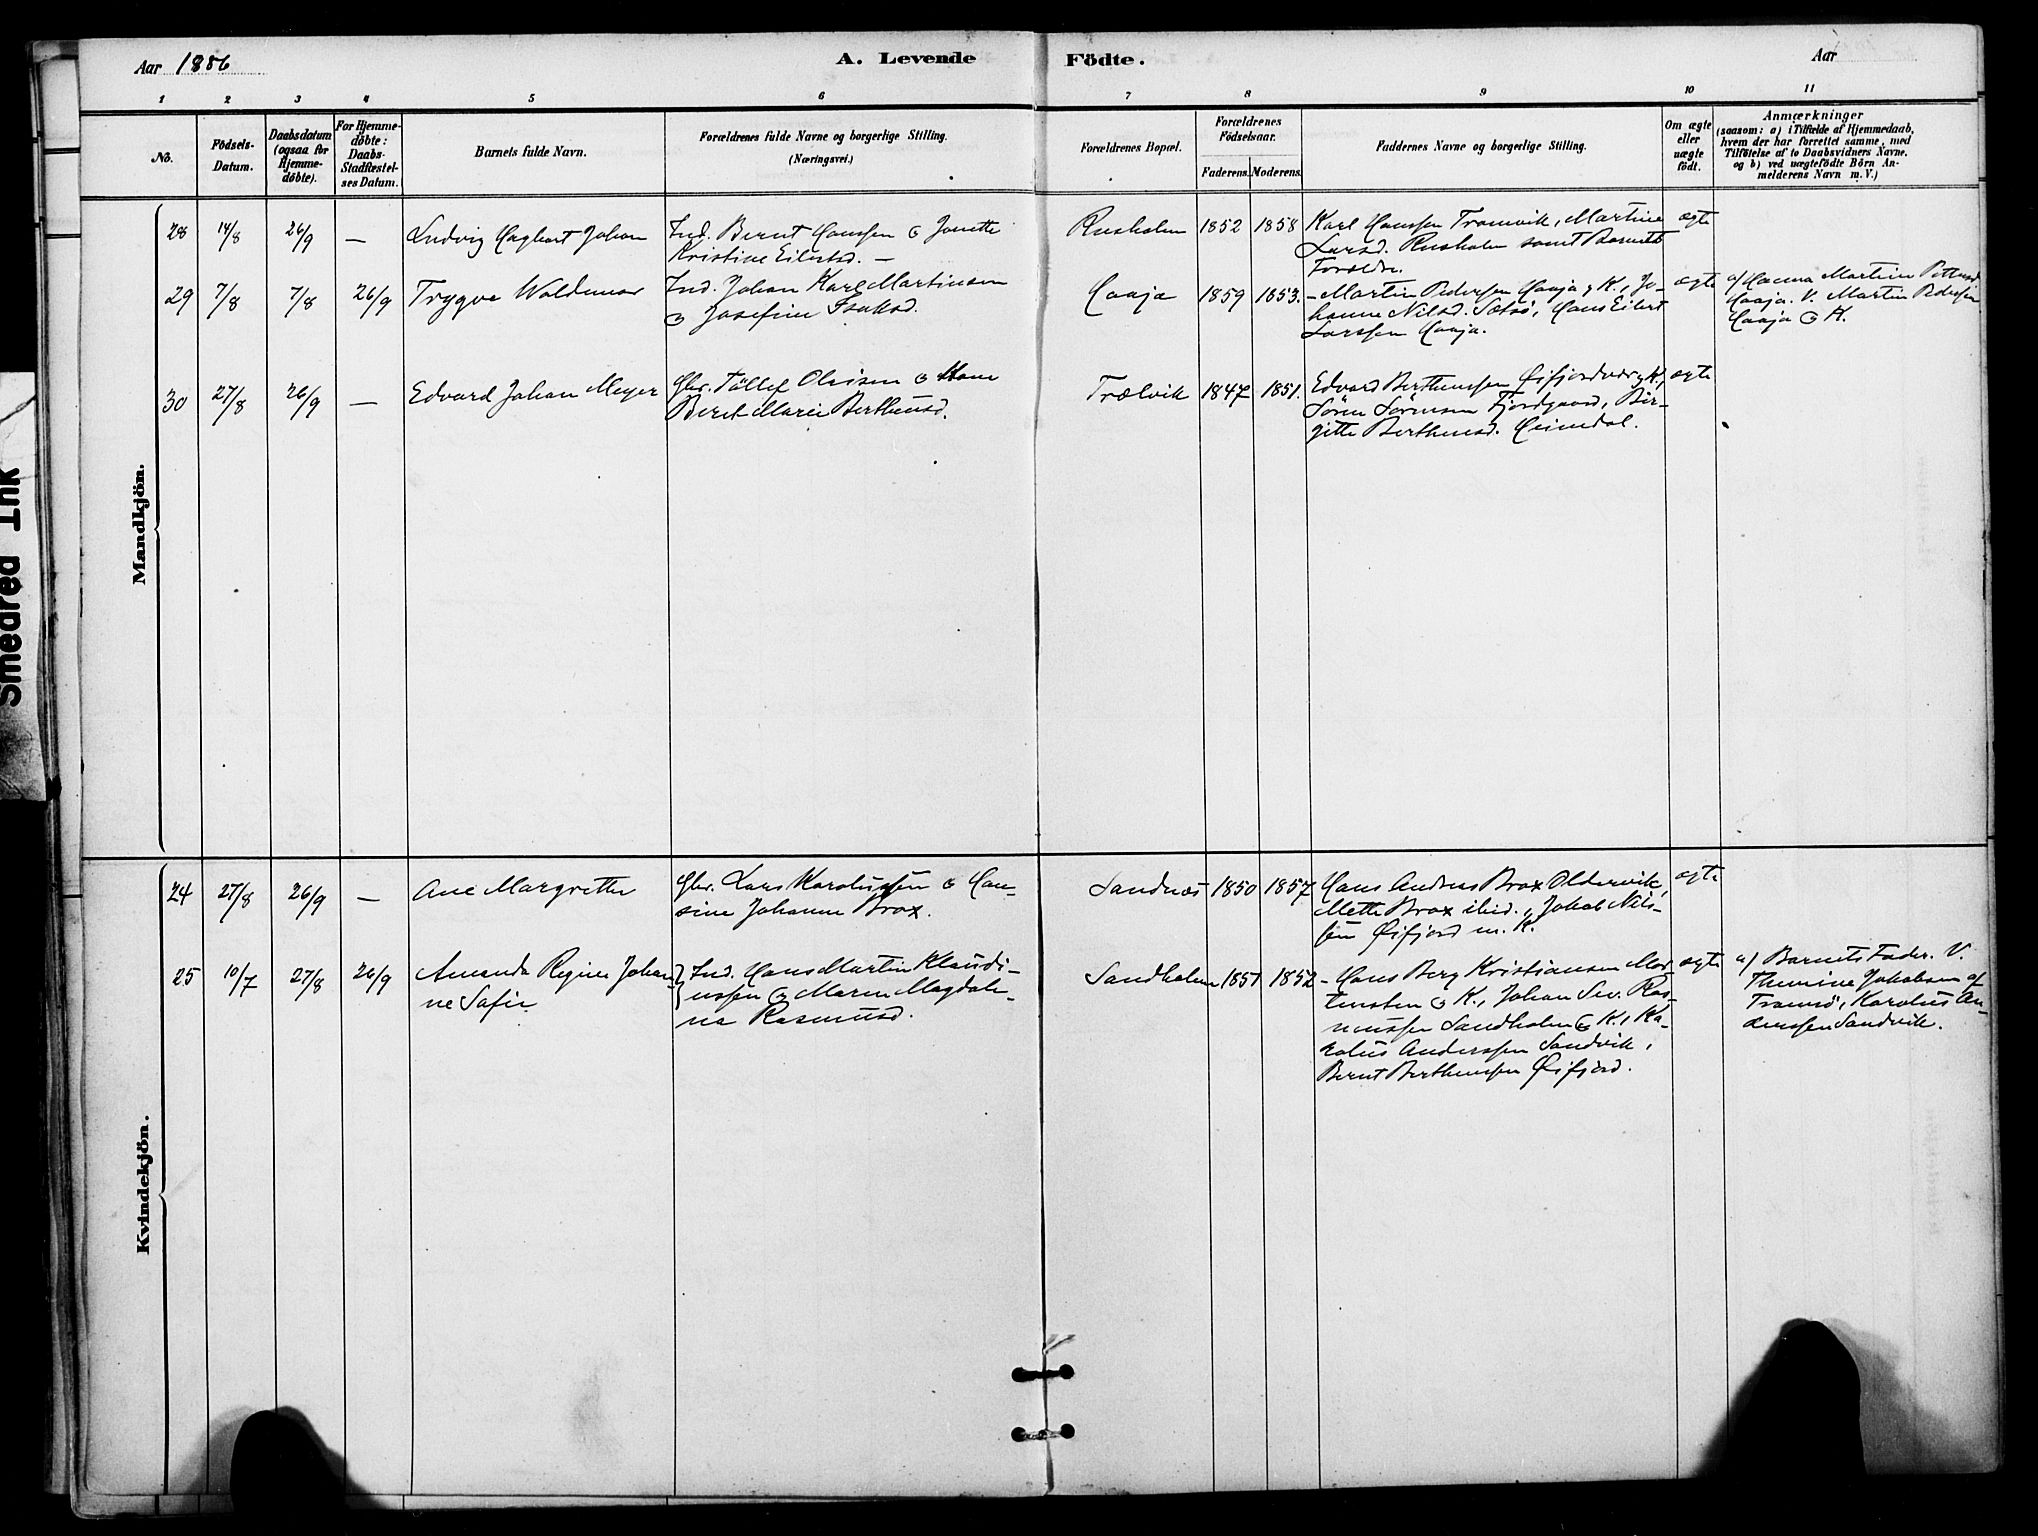 Aar 1886
A. Levende Födte.
Aar
1 2 3 4 5 6 7 8 9 10 11
No.
Födsels-
Datum.
Daabsdatum
(ogsaa for
Hjemme-
døbte).
For Hjemme-
døbte:
Daabs-
Stadfæstel-
ses Datum.
Barnets fulde Navn.
Forældrenes fulde Navne og borgerlige Stilling.
(Næringsvei.)
Forældrenes Bopæl.
Forældrenes
Födselsaar.
Faderens. Moderens.
Faddernes Navne og borgerlige Stilling.
Om ægte
eller
uægte
födt.
Anmærkninger
(saasom: a) i Tilfælde af Hjemmedaab,
hvem der har forrettet samme, med
Tilføielse af to Daabsvidners Navne.
og b) ved uægtefödte Börn An-
melderens Navn m.V.)
Mandkjön.
28 14/8 26/9 —
Ludvig Hagbart Johan
Ind. Bernt Hanssen & Jonette
Kristine Eilertsd. —
Rusholm 1852 1858
Karl Hanssen Tromvik, Martine
Larsd. Rusholm samt Barnets
Forældre.
ægte
29 7/8 7/8 26/9
Trygve Waldemar
Ind. Johan Karl Martinsen
& Josefine Isaksd.
Haaja 1859 1853.
- Martin Pedersen Haaja & K., Jo-
hanne Nilsd. Sætsö, Hans Eilert
Larssen Haaja.
ægte
a/ Hanna Martine Pettersd
Haaja. V. Martin Pedersen
Haaja & K.
30 27/8 26/9 —
Edvard Johan Meyer
Gbr. Töllef Olaisen & Hane
Berit Marie Bertheusd.
Trælvik 1847 1851.
Edvard Bertheussen Øifjordvær & K.,
Sören Sörensen Fjordgaard, Bir-
gitte Bertheusd. Heimdal.
ægte
Kvindekjön.
24 27/8 26/9 —
Ane Margrethe
Gbr. Lars Karolussen & Han-
sine Johanne Brox.
Sandnæs 1850 1857
Hans Andreas Brox Oldervik,
Mette Brox ibid., Jakob Nils-
sen Øifjord m. K.
ægte
25 10/7 27/8 26/9
Amanda Regine Johan-
ne Sofie
Ind. Hans Martin Klaudi-
ussen & Maren Magdale-
na Rasmusd.
Sandholm 1851 1852
- Hans Berg Kristiansen Mor-
tensten & K., Johan Sev. Ras-
mussen Sandholm & K., Ka-
rolus Anderssen Sandvik,
Bernt Bertheussen Øifjord.
ægte
a/ Barnets Fader. V.
Thamine Jakobsen af
Tromsö, Karolus An-
derssen Sandvik.
Smeared Ink